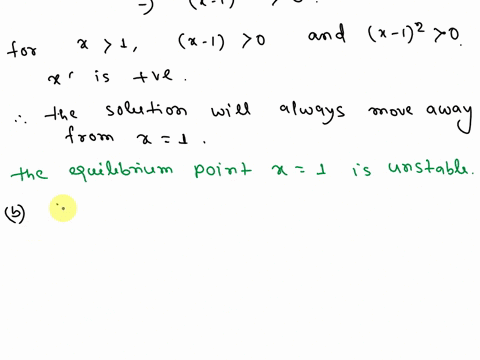 =) (x-1) > 0.
for x > 1, (x-1) > 0 and (x-1)² > 0.
x' is +ve.
∴ the solution will always move away
from x = 1.
the equilibrium point x = 1 is unstable.
(b)